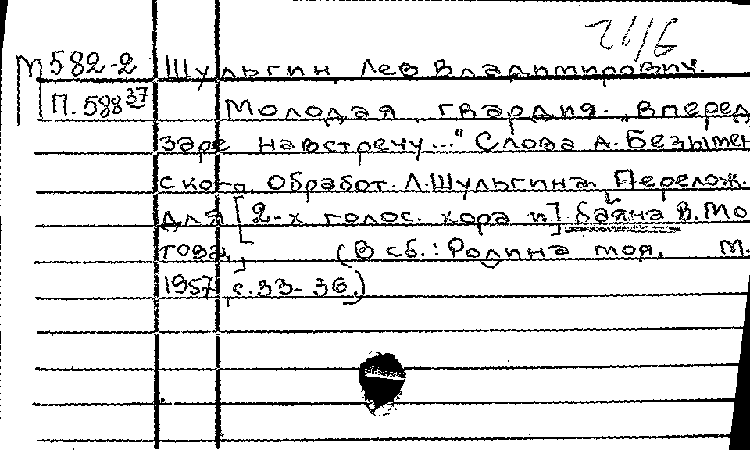 21/6
М 582-2 Шульгин, Лев Владимирович.
П. 588 37 Молодая гвардия. „Вперед
заре навстречу..." Слова А. Безымен
ского. Обработ. Л. Шульгина. Перелож.
для [2-х голос. хора и] баяна В. Мо
това,] (В сб.: Родина моя. М.
1957, с. 33-36.)